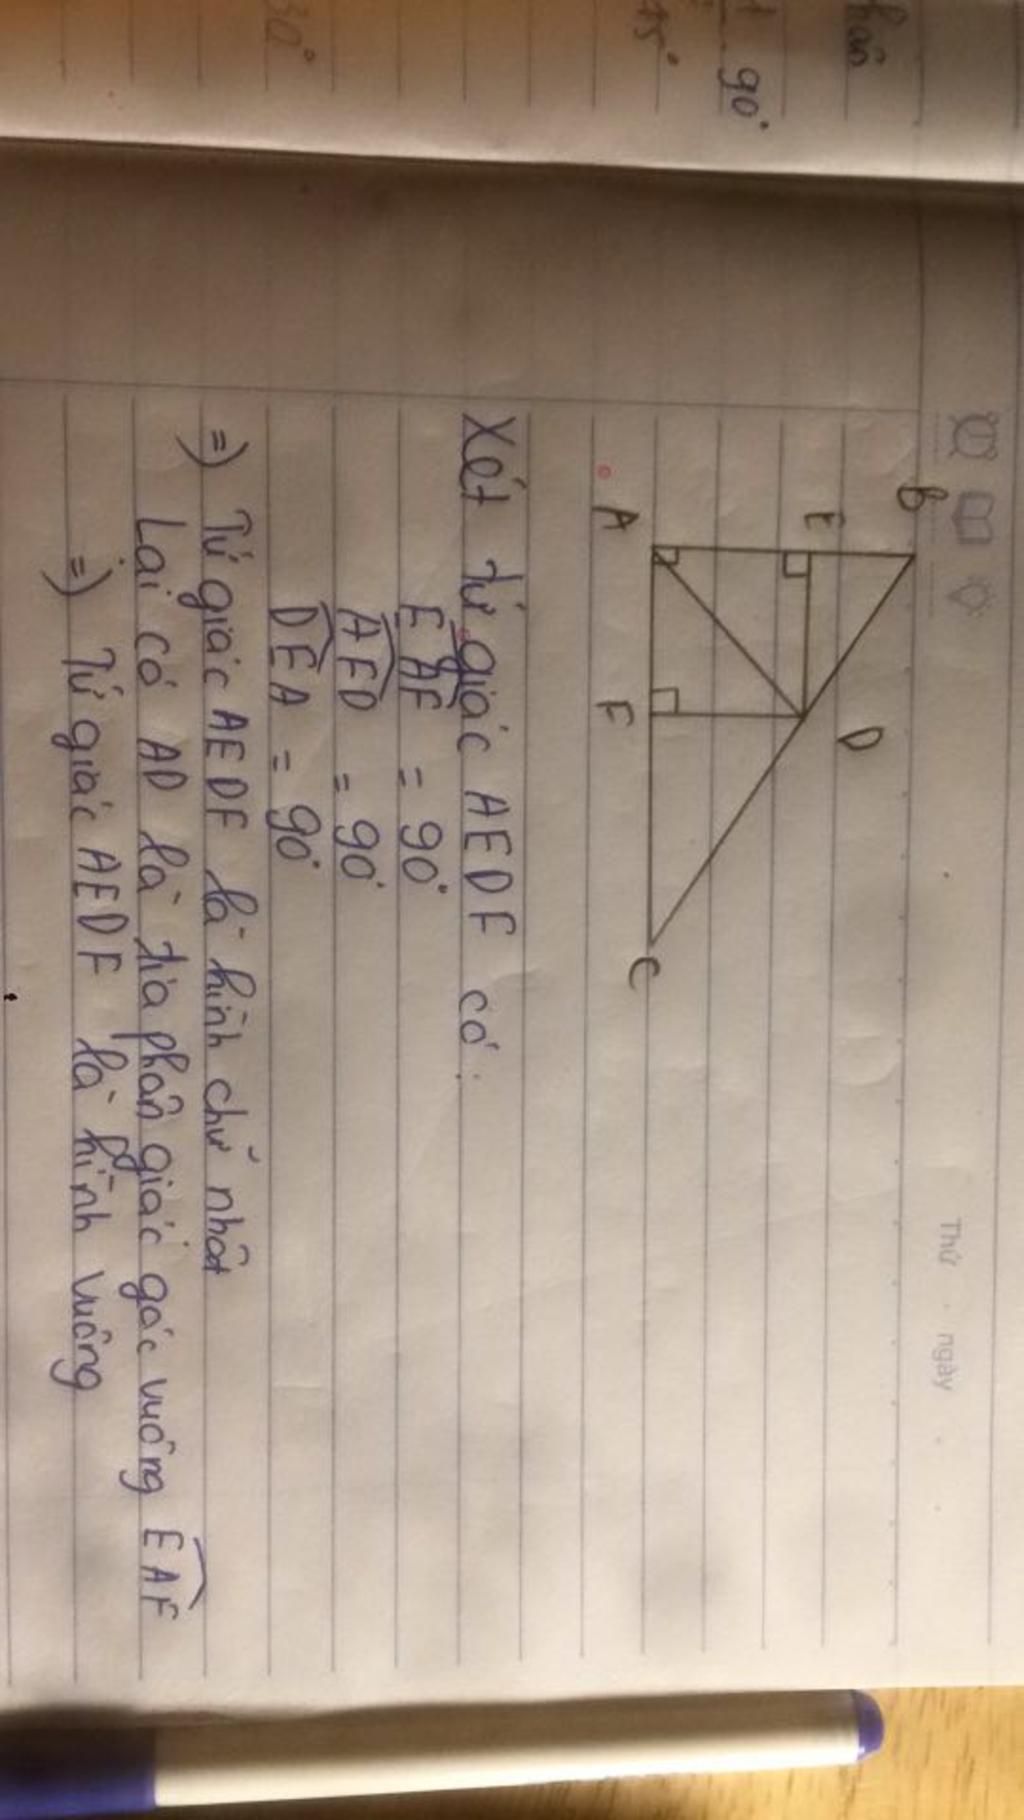 hân
t 90°
45°
30°
Thứ ngày
B
E
D
A
F
C
Xét tứ giác AEDF có:
EAF = 90°
AED = 90°
DEA = 90°
=) Tứ giác AEDF là hình chữ nhật
Lại có AD là tia phân giác góc vuông EAF
=) Tứ giác AEDF là hình vuông